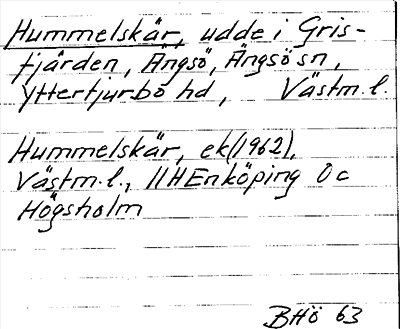 Hummelskär, udde i Gris-
fjärden, Ängsö, Ängsö sn,
Yttertjurbo hd, Västm.l.
Hummelskär, ek(1962),
Västm.l., 11HEnköping 0c
Högsholm
BHö 63